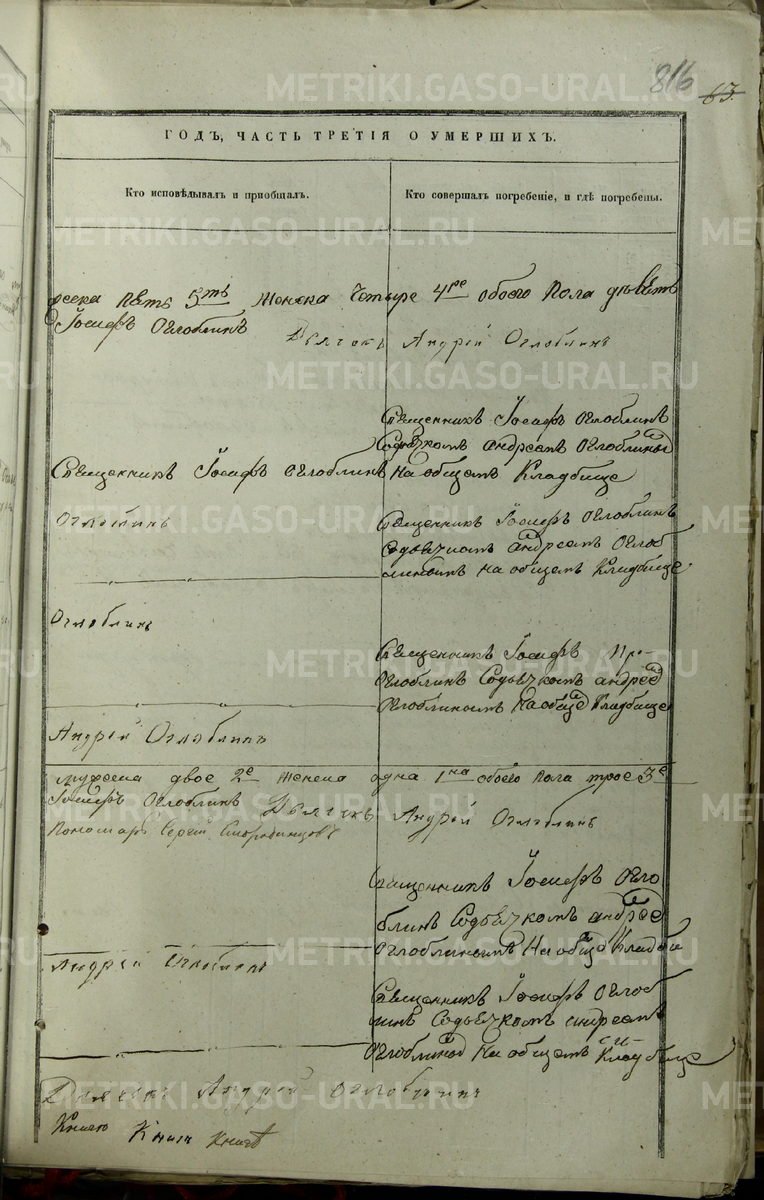 816 63.
ГОДЪ, ЧАСТЬ ТРЕТІЯ О УМЕРШИХЪ.
Кто исповѣдывалъ и пріобщалъ.
Кто совершалъ погребеніе, и гдѣ погребены.
пять 5ть женска четыре 4ре обоего пола девять
Іосифъ Оглоблинъ
Дьячекъ Андрей Оглоблинъ
Священникъ Іосифъ Оглоблинъ
Священникъ Іосифъ Оглоблинъ
Содьячкомъ андреемъ Оглоблины
На общемъ Кладбище
Оглоблинъ
Священникъ Іосифъ Оглоблинъ
Содьячкомъ андреемъ Оглоб
линымъ на общемъ Кладбище
Оглоблинъ
Священникъ Іосифъ
Оглоблинъ Содьячкомъ андрее
Оглоблинымъ На обще Кладбище
Андрей Оглоблинъ
мужеска двое 2е женска одна 1на обоего пола трое 3е
Іосифъ Оглоблинъ Дьячекъ Андрей Оглоблинъ
Пономарь Сергей
Священникъ Іосифъ Огло
блинъ Содьячкомъ андрее
Оглоблинымъ На обще Кладби
Андрей Оглоблинъ
Священникъ Іосифъ Оглоб
линъ Содьячкомъ андреемъ
Оглоблины На общемъ Кладбище
Дьячекъ Андрей Оглоблинъ
METRIKI.GASO-URAL.RU